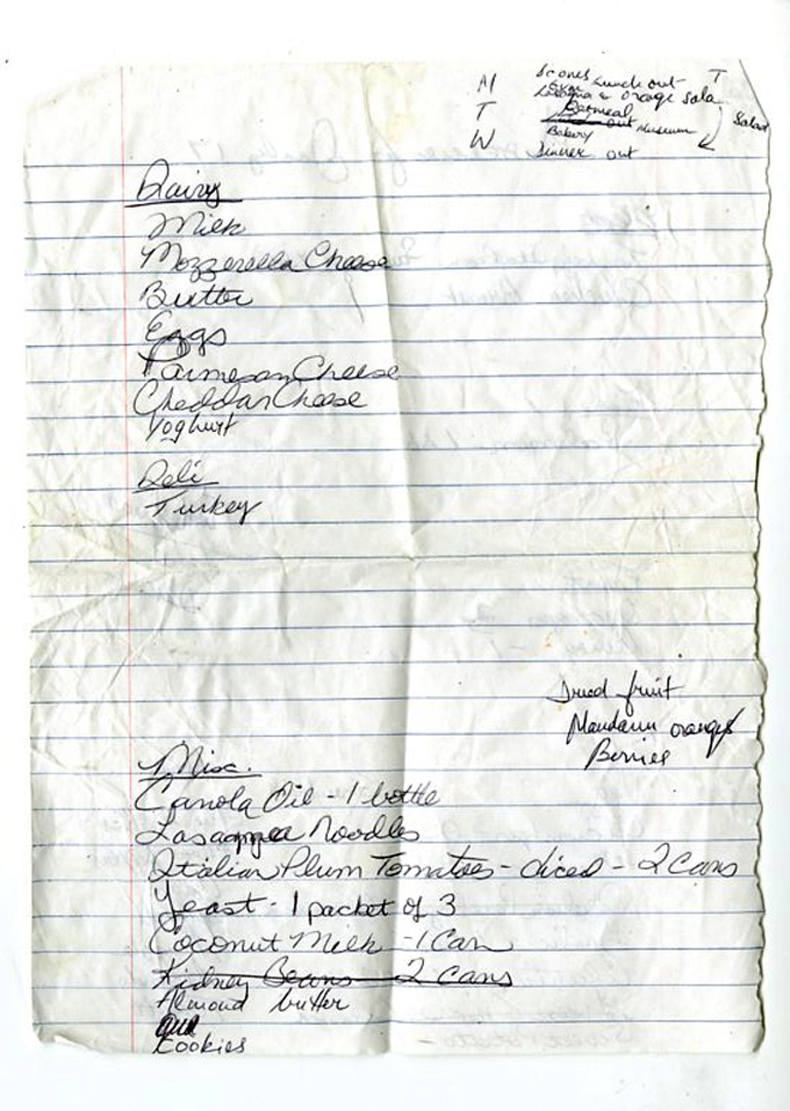 M Scones Lunch out T
Lasagna & orange sala
T Oatmeal
out Museum Salad
Bakery
W Dinner out
Dairy
Milk
Mozzerella Cheese
Butter
Eggs
Parmesan Cheese
Cheddar Cheese
Yoghurt
Deli
Turkey
Dried fruit
Mandarin oranges
Berries
Misc.
Canola Oil - 1 bottle
Lasagna Noodles
Italian Plum Tomatoes - diced - 2 Cans
Yeast - 1 packet of 3
Coconut Milk - 1 Can
Kidney Beans 2 cans
Almond butter
Cookies